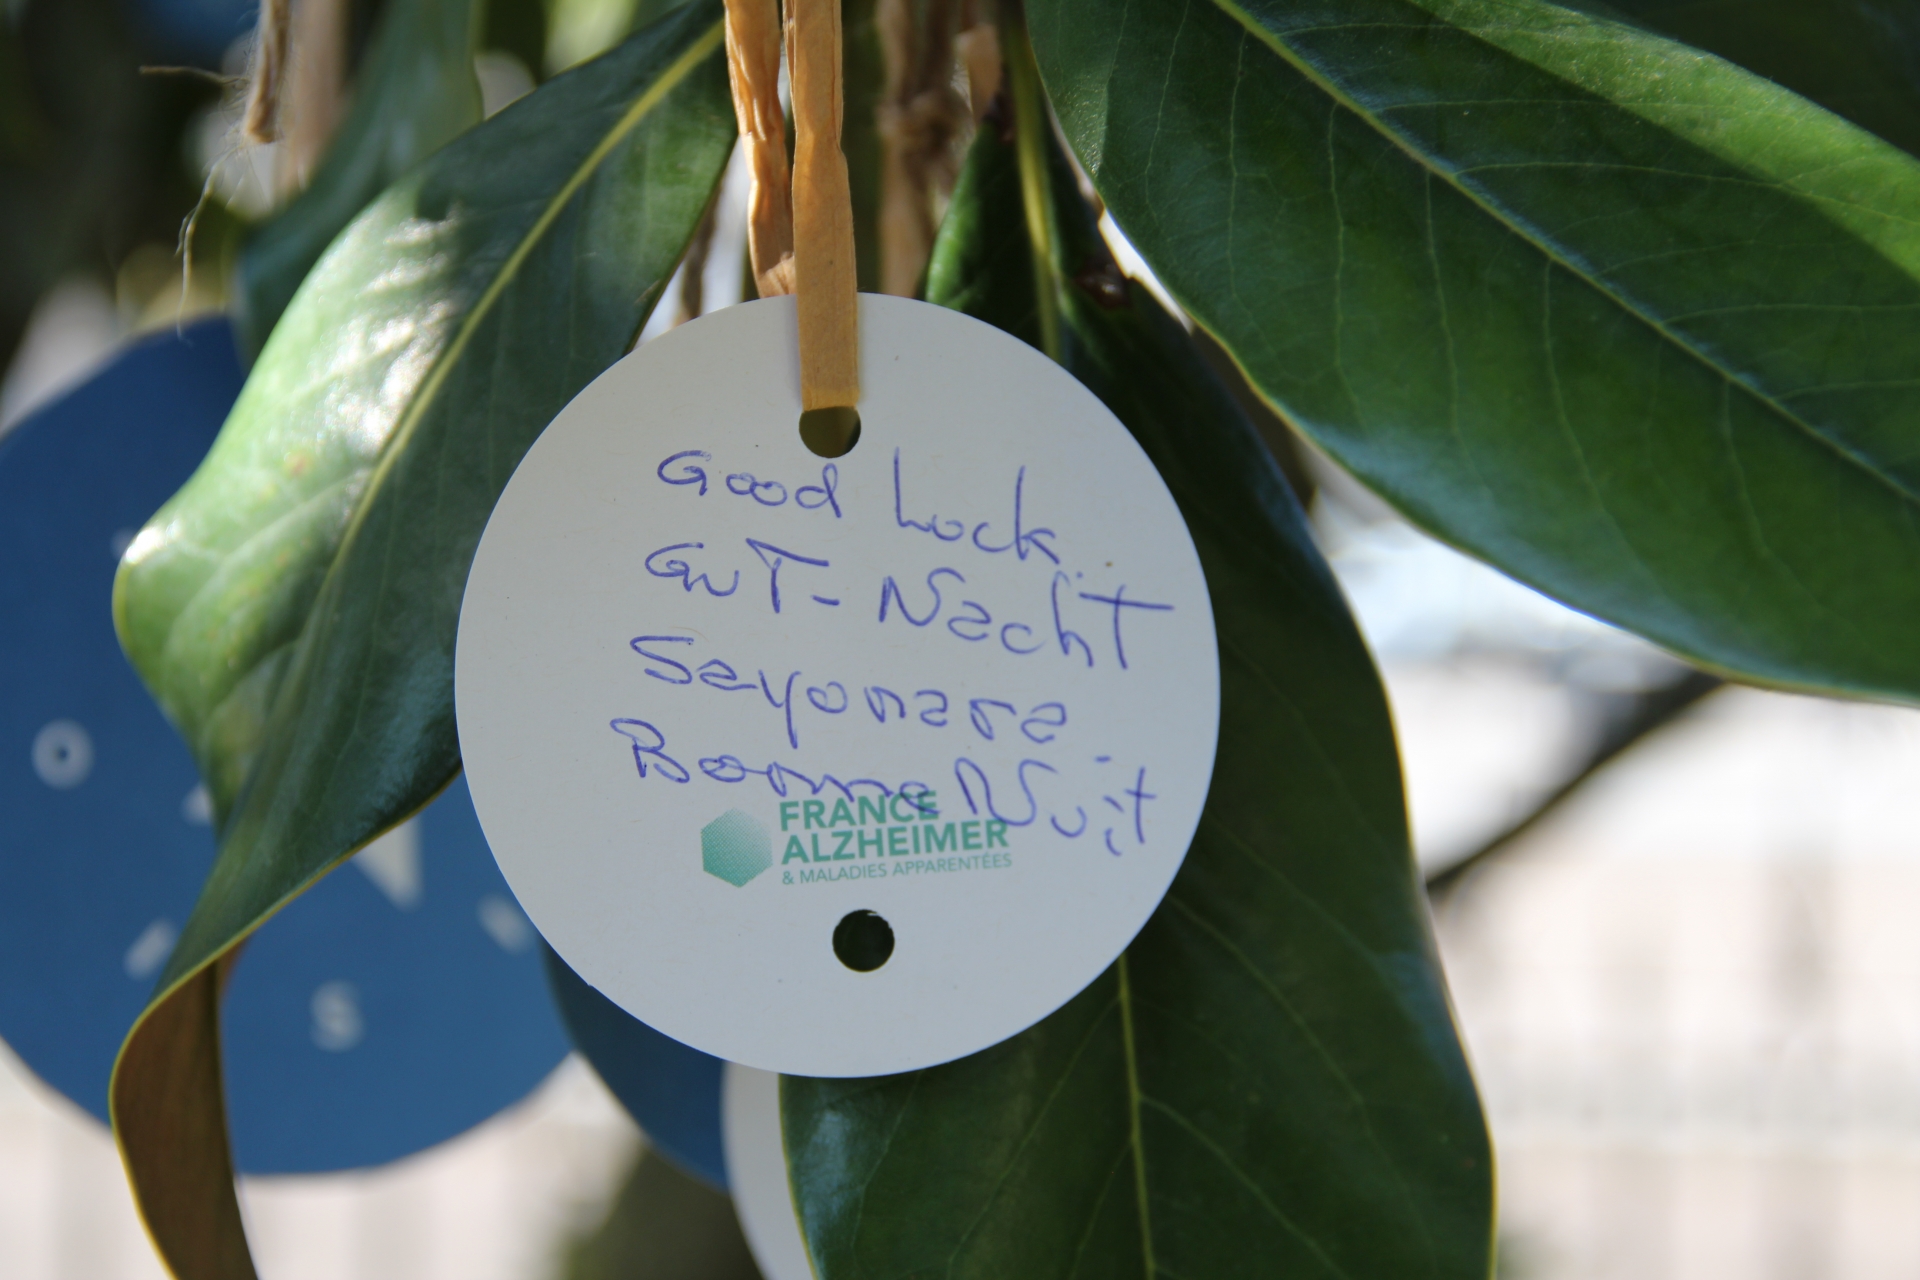 Good Lock.
GuT-NachT
Sayonara
Bonne Nuit
FRANCE
ALZHEIMER
& MALADIES APPARENTÉES
O
S